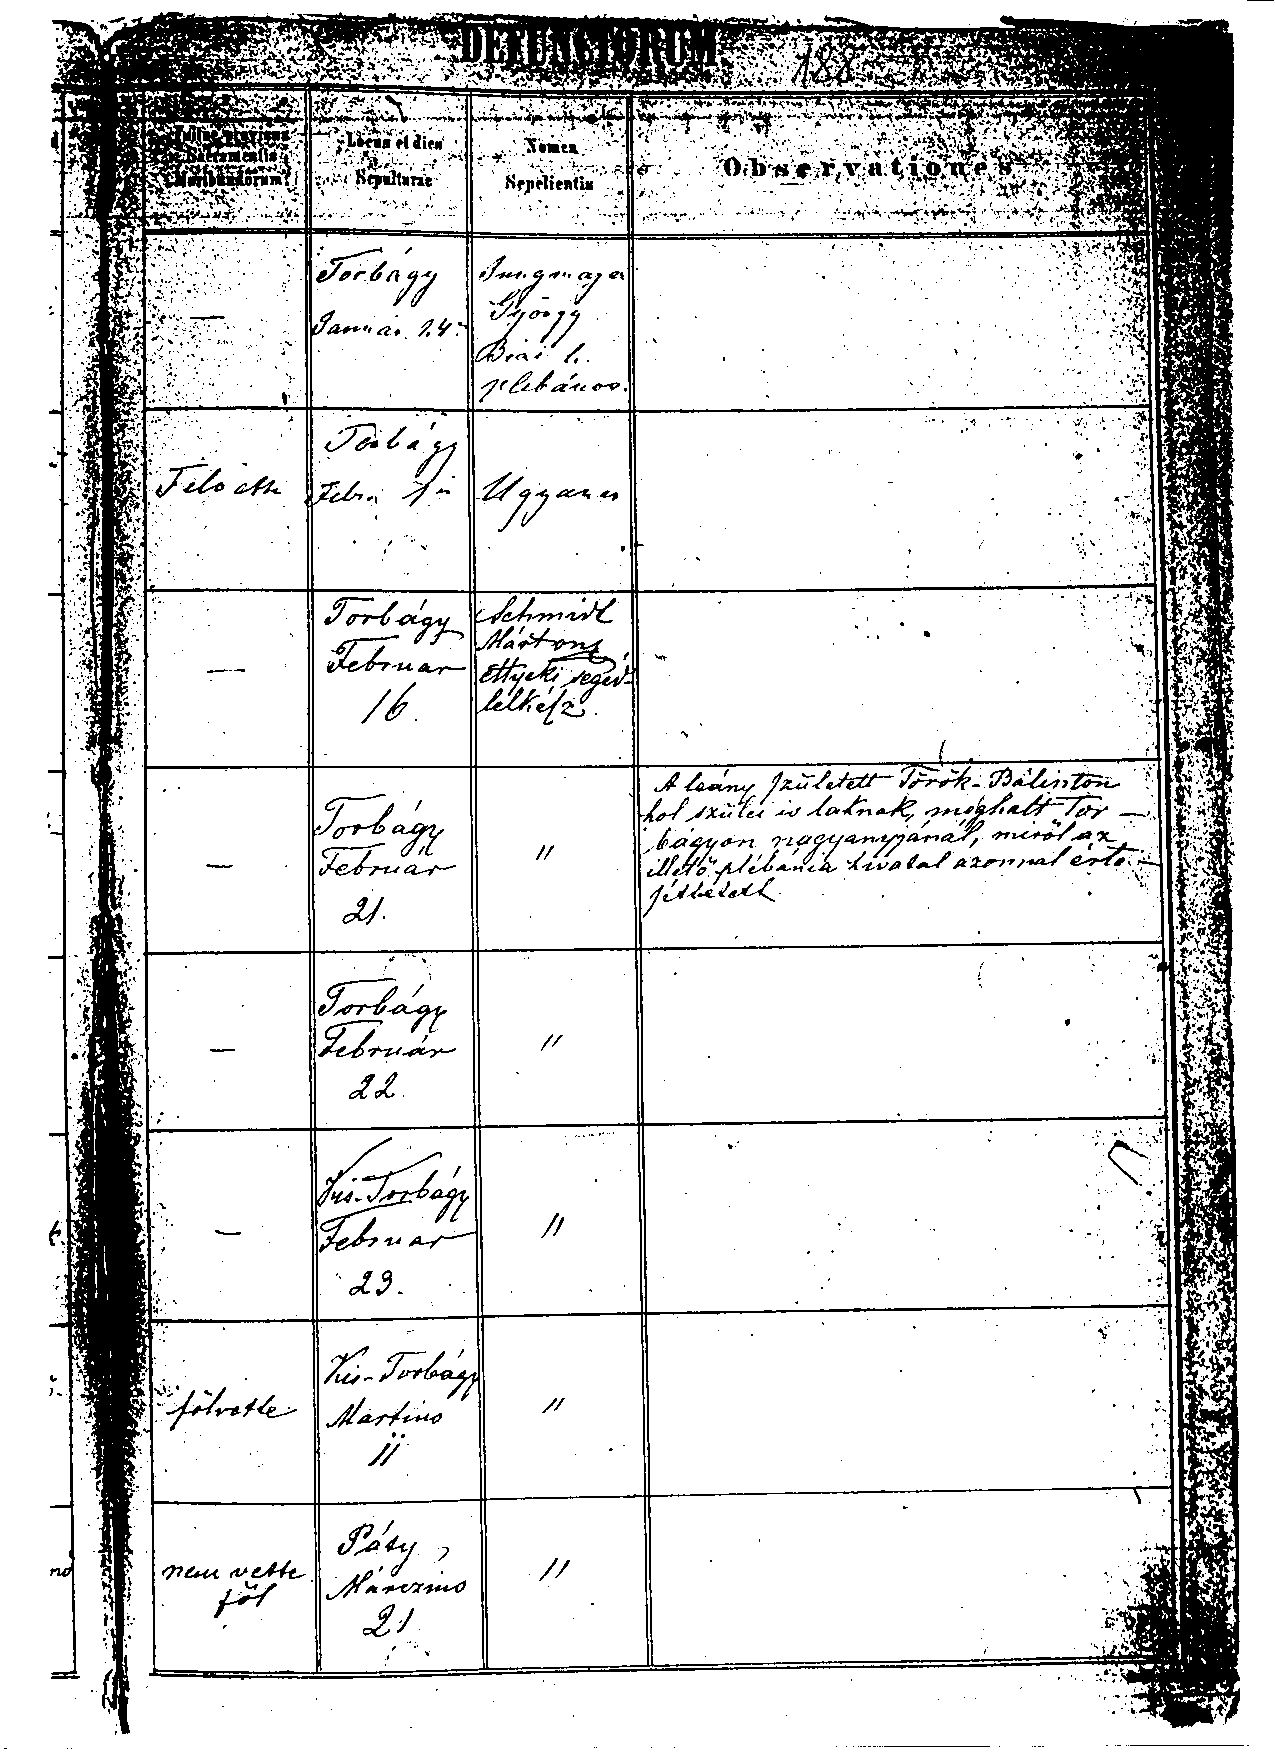 DEFUNCTORUM.
188
Locus et dies
Sepulturae
Nomen
Sepelientis
Observationes
Sacramentis
Moribundorum?
—
Torbágy
Január 14.
György
Biai h.
plebános.
Torbágy
Febr.
Ugyanez
—
Torbágy
Február
16.
Schmidl
Márton
Ettyeki segéd-
lelkész.
—
Torbágy
Február
21.
"
A leány született Török-Bálinton
hol szülei is laknak, meghalt Tor —
bágyon nagyanyjánál, miröl az
illető plébánia hivatal azonnal érte-
síttetett
—
Torbágy
Február
22.
"
—
Kis-Torbágy
Februar
23.
"
fölvette
Kis-Torbágy
Martius
11
"
nem vette
föl
Páty,
Márczius
21
"